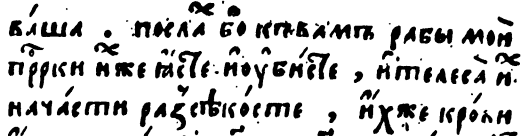 ва́ша . посла́ х бо к вамъ рабы моѧ̀
прⷪ҇рки и҆̀хже ꙗ҆́сте . и҆ ᲂу҆би́сте , и҆ телеса̀ и҆́х
на ча́сти разсѣко́сте , и҆́хже кро́ви